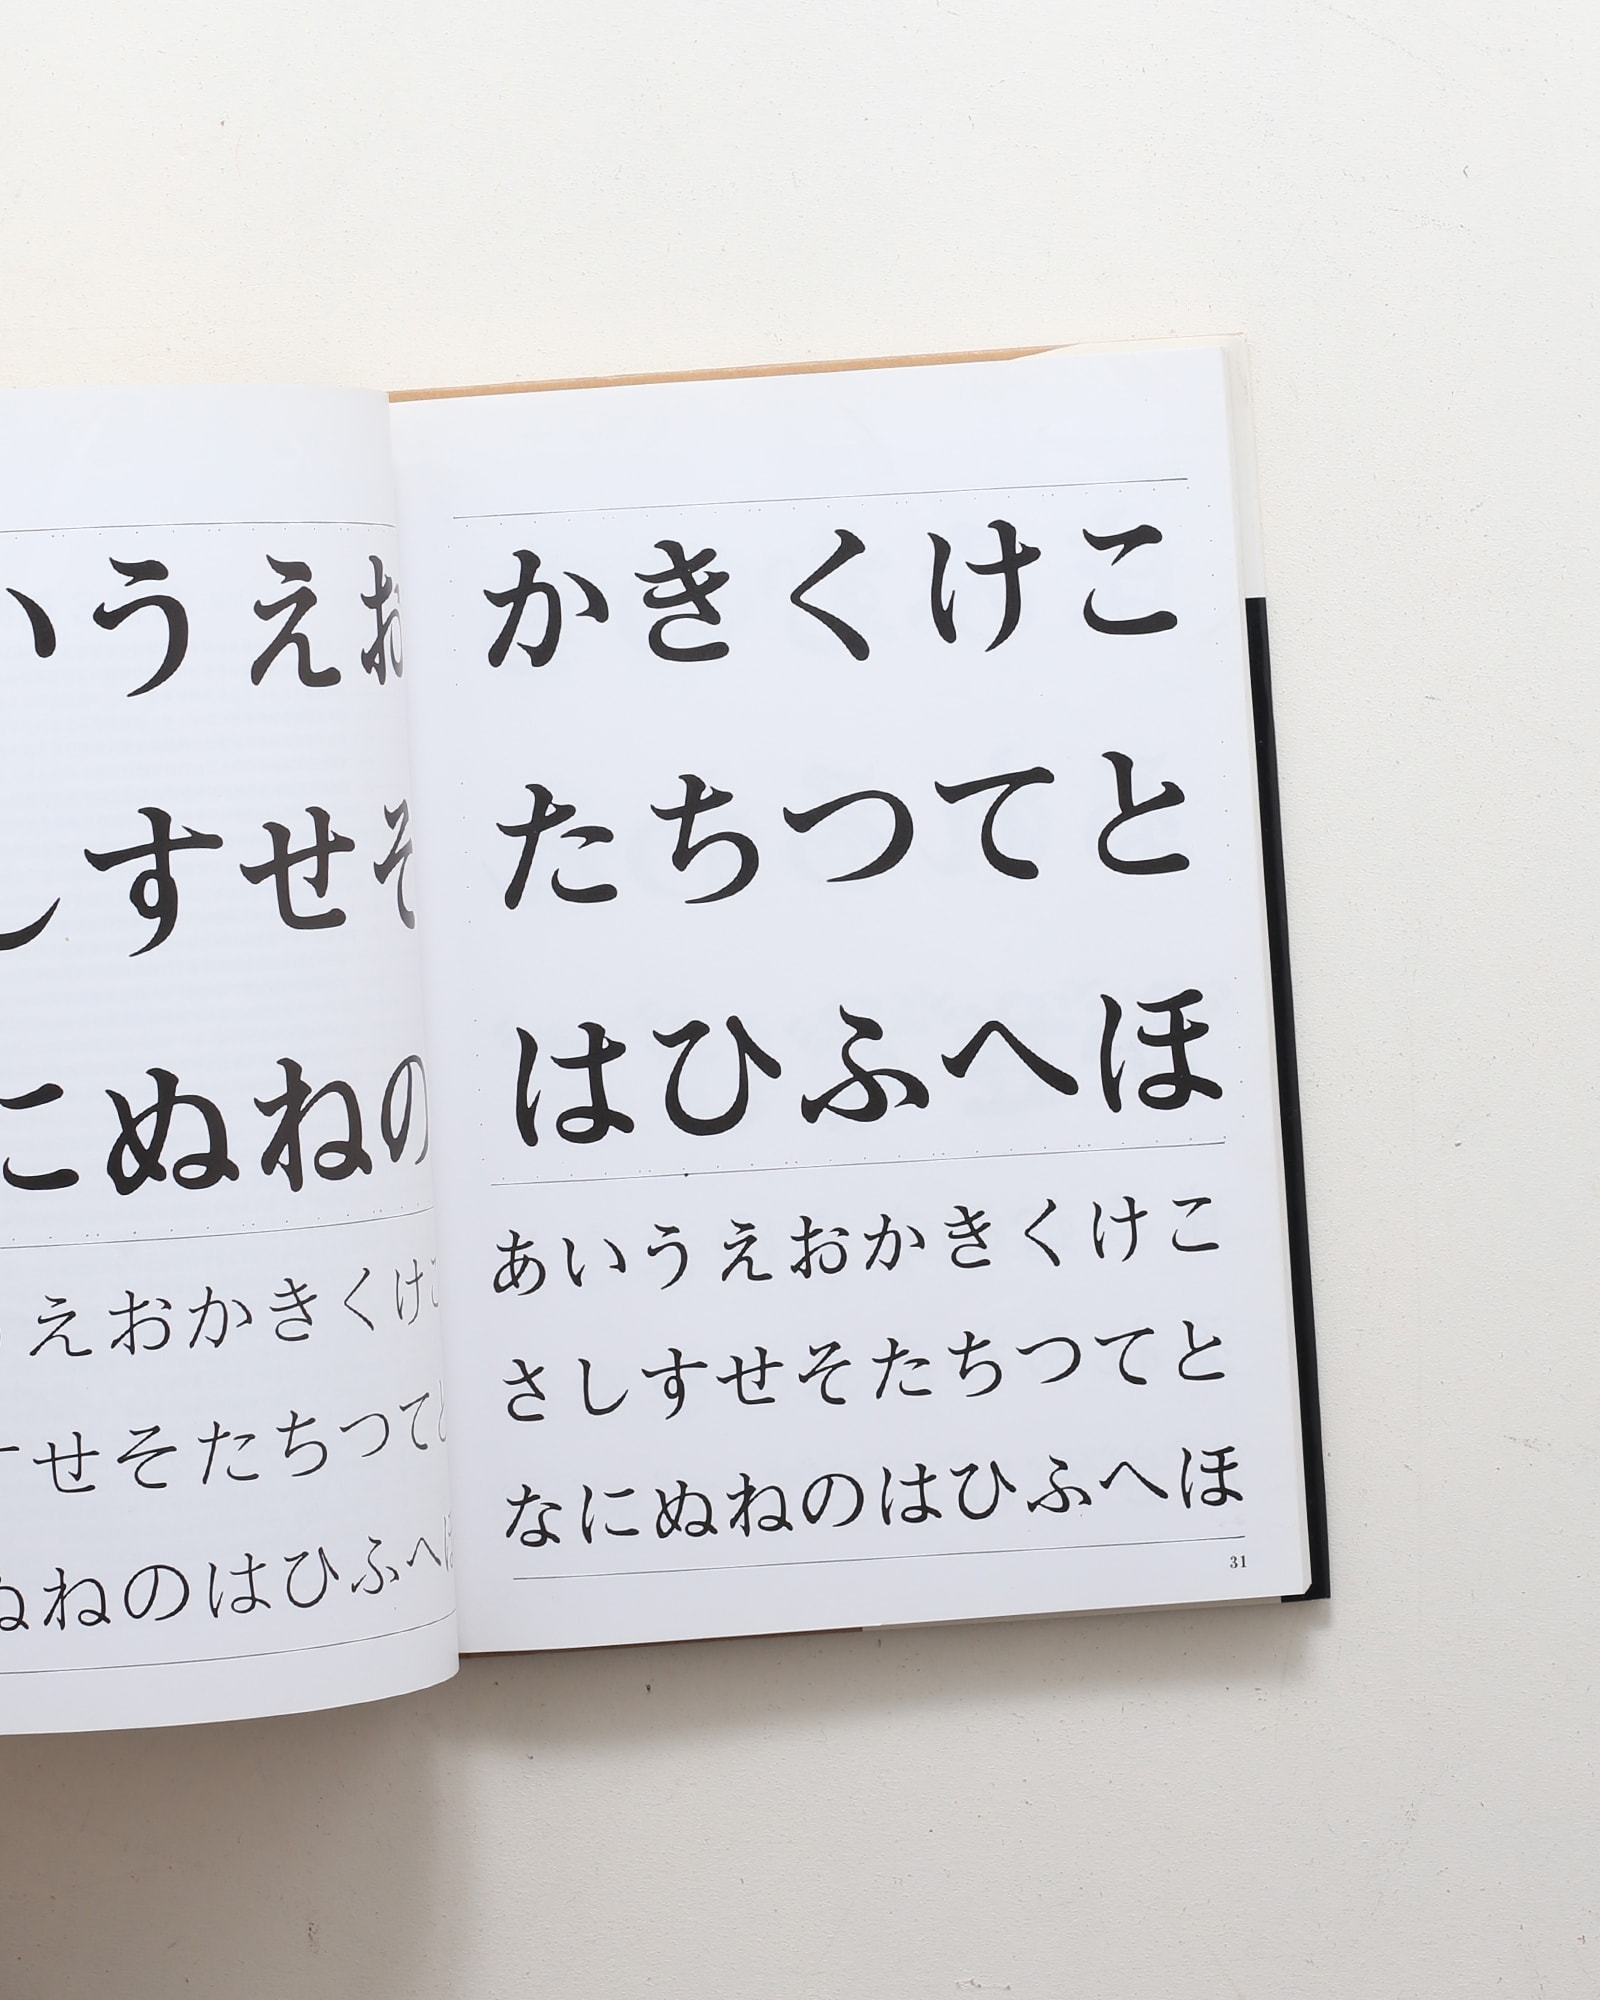 いうえお
しすせそ
にぬねの
えおかきくけこ
せそたちつてと
ぬねのはひふへほ
かきくけこ
たちつてと
はひふへほ
あいうえおかきくけこ
さしすせそたちつてと
なにぬねのはひふへほ
31